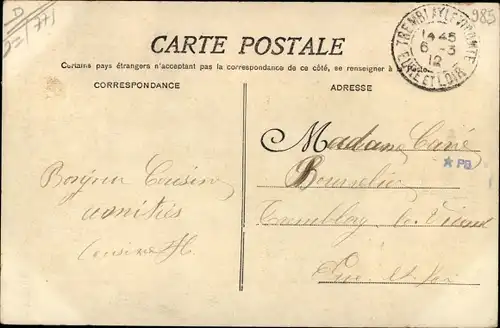 985
CARTE POSTALE
Certains pays étrangers n'acceptant pas la correspondance de ce côté, se renseigner à la Poste
CORRESPONDANCE
ADRESSE
TREMBLAY-LE-VICOMTE
14 45
6 - 3
12
EURE ET LOIR
Madame
PB
Bonjour Cousine
amitiés
Cousine H
Tremblay le Vicom
Eure et Loir